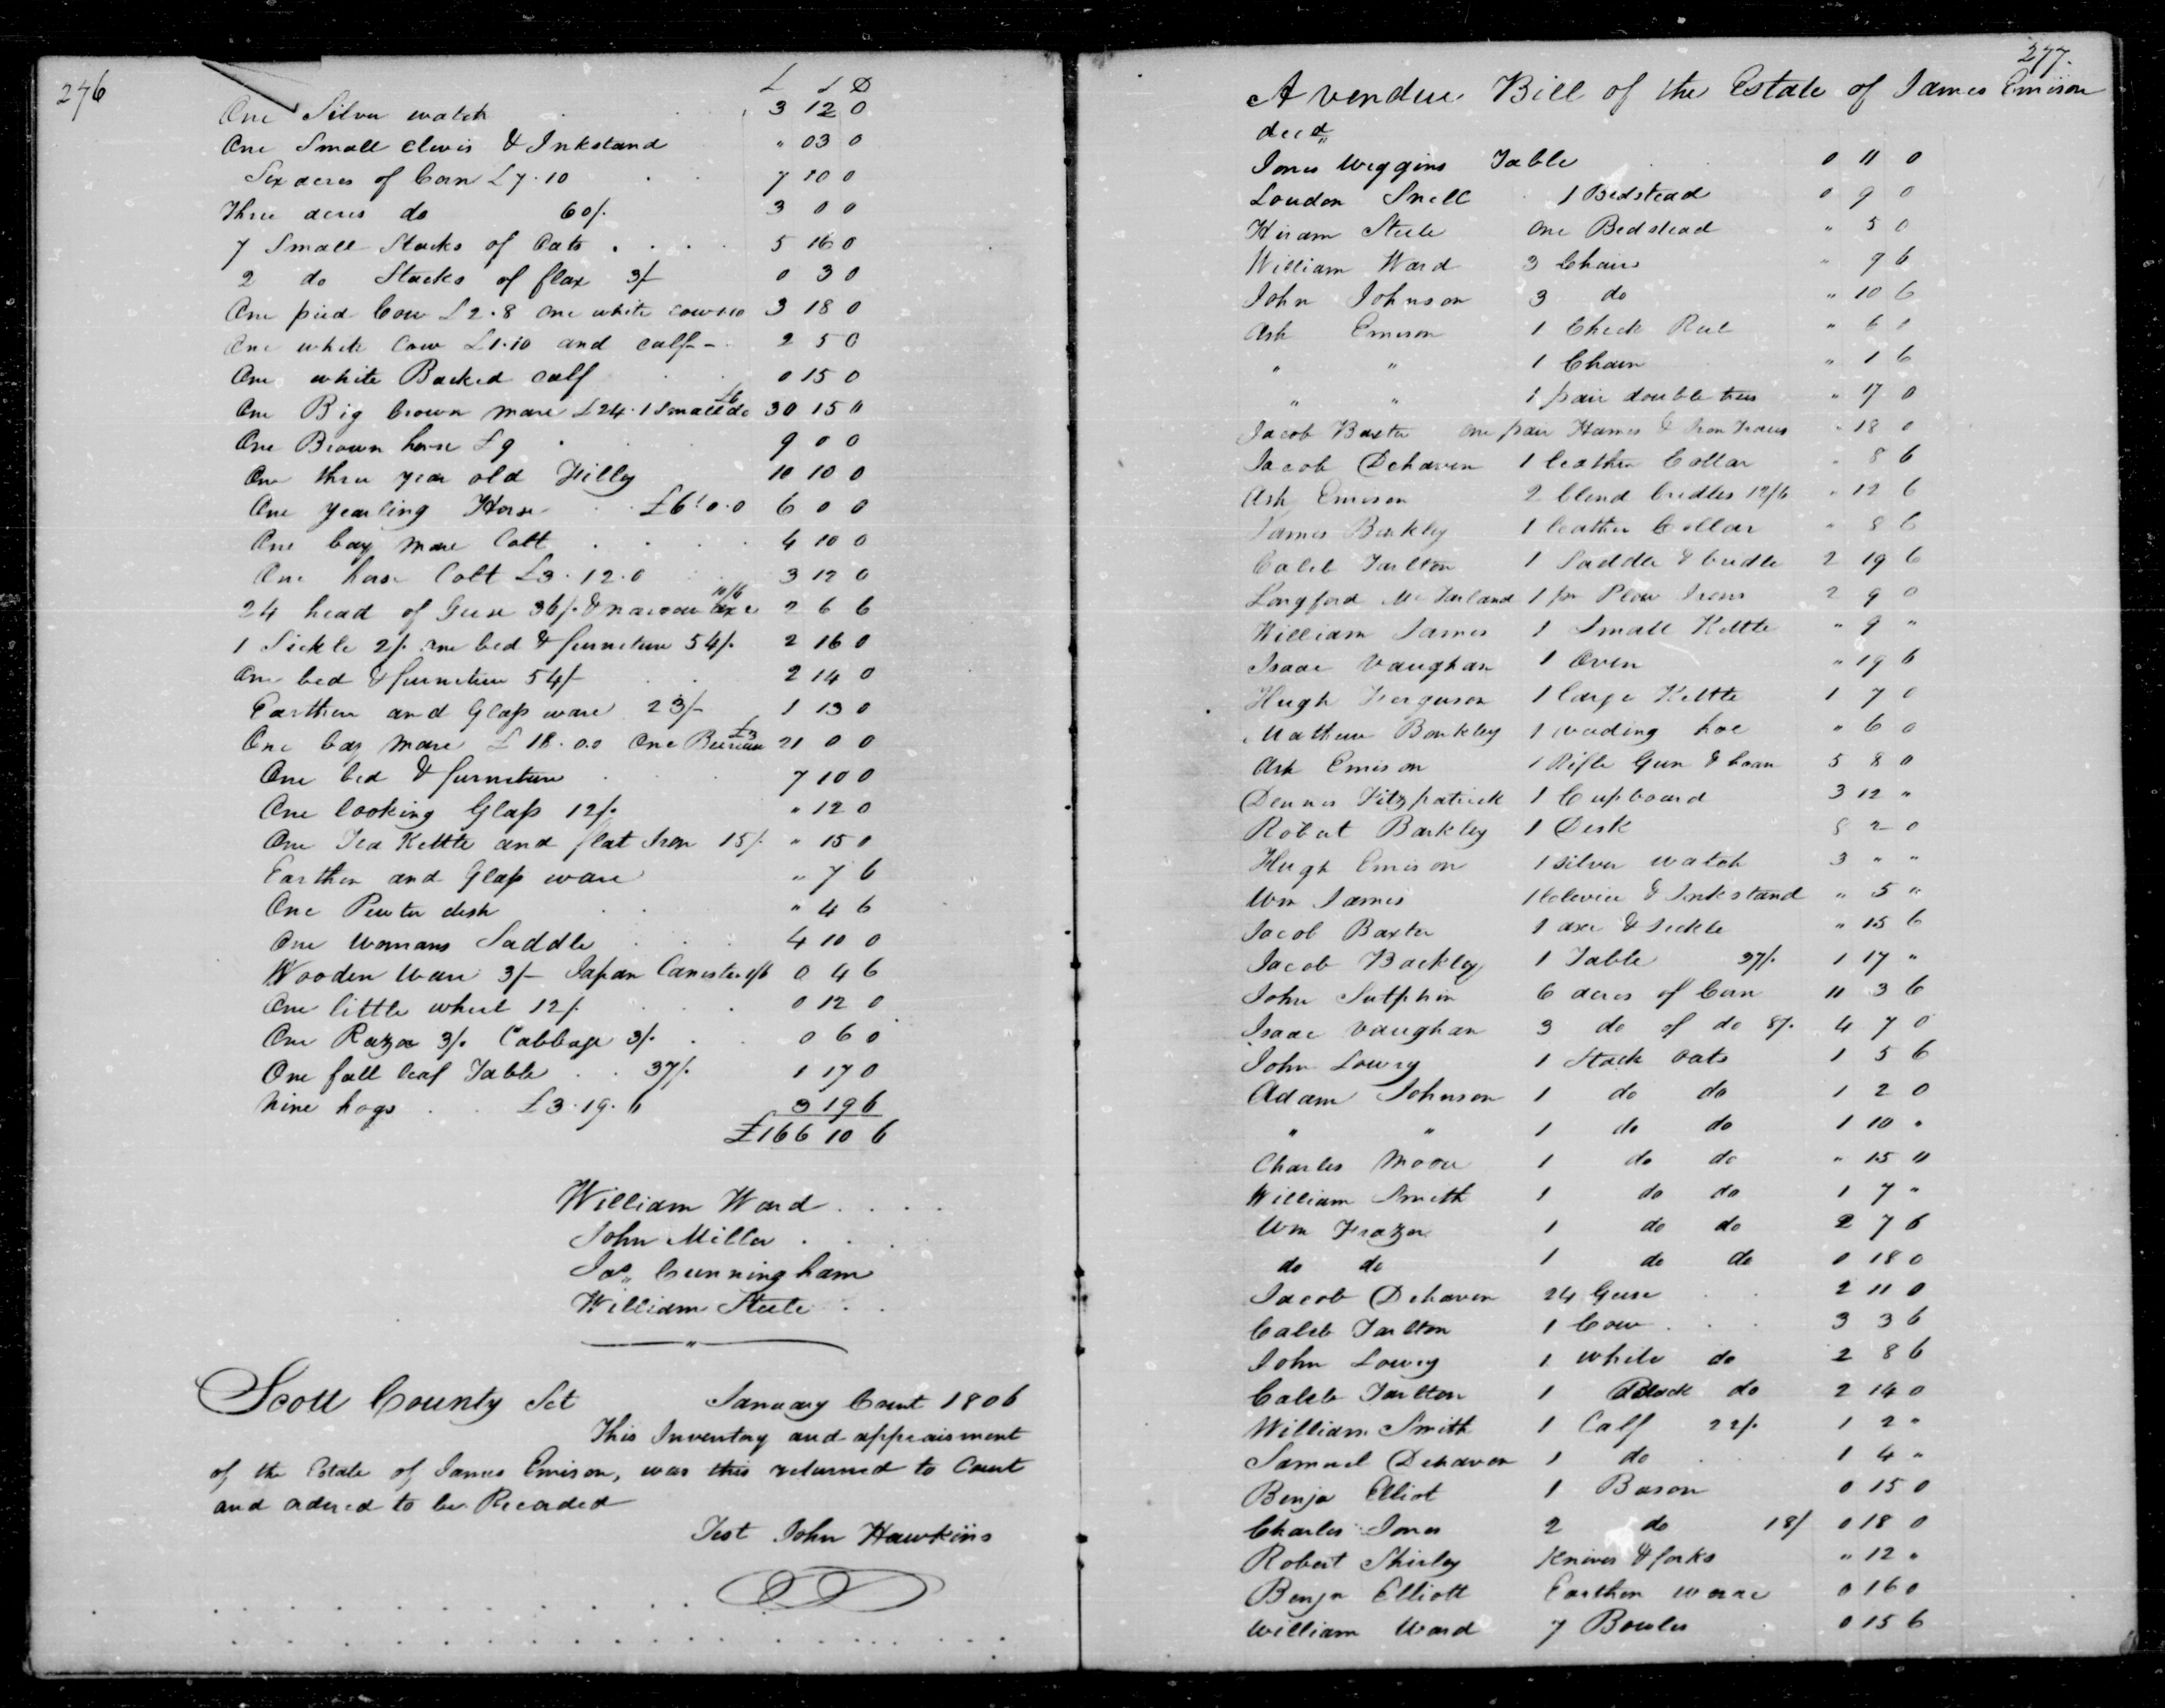 276
£ S D
One Silver watch 3 12 0
One Small clevis & Inkstand " 03 0
Six acres of Corn £7.10 7 10 0
Three acres do 60/. 3 0 0
7 Small Stacks of Oats 5 16 0
2 do Stacks of flax 3/- 0 3 0
One pied Cow £2.8 one white cow 1.10 3 18 0
One white Cow £1.10 and calf - 2 5 0
One white Backed calf 0 15 0
One Big brown mare £24. 1 Small do £6 30 15 0
One Brown horse £9 9 0 0
One three year old Filley 10 10 0
One yearling Horse £6.0.0 6 0 0
One bay mare Colt 4 10 0
One horse Colt £3.12.0 3 12 0
24 head of Geese 36/. & narrow axe 10/6 2 6 6
1 Sickle 2/. one bed & furniture 54/. 2 16 0
One bed & furniture 54/- 2 14 0
Earthen and Glass ware 23/- 1 13 0
One bay mare £18.0.0 One Bureau £3 21 0 0
One bed & furniture 7 10 0
One looking Glass 12/. " 12 0
One Tea Kettle and flat Iron 15/. " 15 0
Earthen and Glass ware " 7 6
One Pewter dish " 4 6
One womans Saddle 4 10 0
Wooden ware 3/- Japan Canister 1/6 0 4 6
One little wheel 12/. 0 12 0
One Razor 3/. Cabbage 3/. 0 6 0
One fall leaf Table 37/. 1 17 0
Nine hogs £3.19.6 3 19 6
£166 10 6
William Ward
John Miller
Jas. Cunningham
William Steele
Scott County Sct January Court 1806
This Inventory and appraisment
of the Estate of James Emison, was this returned to Court
and ordered to be Recorded
Test John Hawkins
277.
A vendue Bill of the Estate of James Emison
decd
Jones Wiggins Table 0 11 0
Loudon Snell 1 Bedstead 0 9 0
Hiram Steele one Bedstead " 5 0
William Ward 3 Chairs " 9 6
John Johnson 3 do " 10 6
Ash Emison 1 Check Reel " 6 0
" " 1 Chain " 1 6
" " 1 pair double trees " 17 0
Jacob Baxter one pair Hames & Iron Traces " 18 0
Jacob Dehaven 1 leather Collar " 8 6
Ash Emison 2 blind bridles 12/6 " 12 6
James Barkley 1 leather Collar " 8 6
Caleb Tarlton 1 Saddle & bridle 2 19 6
Langford McFarland 1 pr Plow Irons 2 9 0
William James 1 Small Kettle " 9 "
Isaac Vaughan 1 Oven " 19 6
Hugh Ferguson 1 large Kettle 1 7 0
Mathew Barkley 1 weading hoe " 6 0
Ash Emison 1 Rifle Gun & horn 5 8 0
Dennis Fitzpatrick 1 Cupboard 3 12 "
Robert Barkley 1 Desk 8 2 0
Hugh Emison 1 silver watch 3 " "
Wm James 1 Clevice & Inkstand " 5 "
Jacob Baxter 1 axe & sickle " 15 6
Jacob Backley 1 Table 37/. 1 17 "
John Sutphin 6 acres of Corn 11 3 6
Isaac Vaughan 3 do of do 87/. 4 7 0
John Lowry 1 Stack oats 1 5 6
Adam Johnson 1 do do 1 2 0
" " 1 do do 1 10 "
Charles Moore 1 do do " 15 "
William Smith 1 do do 1 7 "
Wm Frazer 1 do do 2 7 6
do do 1 do do 0 18 0
Jacob Dehaven 24 Geese 2 11 0
Caleb Tarlton 1 Cow 3 3 6
John Lowry 1 white do 2 8 6
Caleb Tarlton 1 Black do 2 14 0
William Smith 1 Calf 22/. 1 2 "
Samuel Dehaven 1 do 1 4 "
Benja Elliot 1 Bason 0 15 0
Charles Jones 2 do 18/ 0 18 0
Robert Shirley Knives & forks " 12 "
Benja Elliott Earthen ware 0 16 0
William Ward 7 Bowles 0 15 6